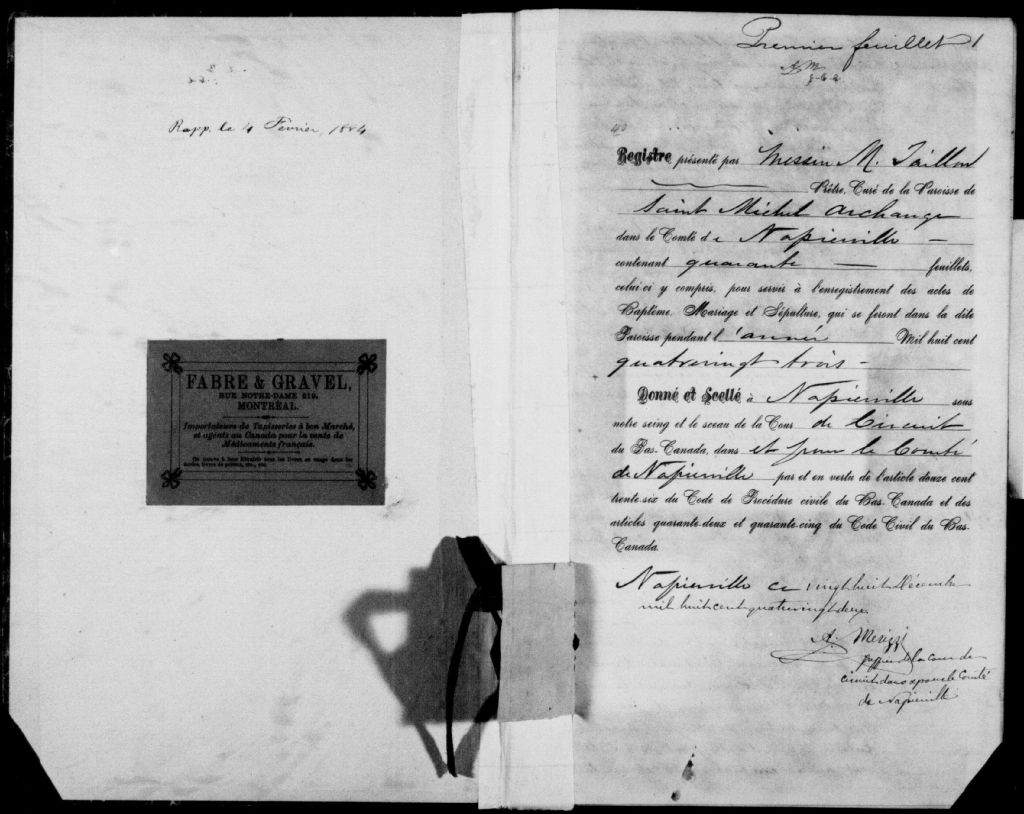 Rapp. le 4 Février, 1884
FABRE & GRAVEL,
RUE NOTRE-DAME 219,
MONTRÉAL.
Importateurs de Tapisseries à bon Marché,
et agents au Canada pour la vente de
Médicaments français.
On trouve à leur librairie tous les livres en usage dans les
Premier feuillet 1
Registre présenté par Messire M. Taillon
Prêtre, Curé de la Paroisse de
Saint Michel Archange
dans le Comté de Napierville —
contenant quarante — feuillets,
celui-ci y compris, pour servir à l'enregistrement des actes de
Baptême, Mariage et Sépulture, qui se feront dans la dite
Paroisse pendant l'année Mil huit cent
quatrevingt trois —
Donné et Scellé à Napierville sous
notre seing et le sceau de la Cour de Circuit
du Bas-Canada, dans et pour le Comté
de Napierville par et en vertu de l'article douze cent
trente-six du Code de Procédure civile du Bas-Canada et des
articles quarante-deux et quarante-cinq du Code Civil du Bas-
Canada.
Napierville ce vingt huit Décembre
mil huit cent quatrevingt deux.
A. Merizzi
greffier de la Cour de
circuit dans et pour le Comté
de Napierville